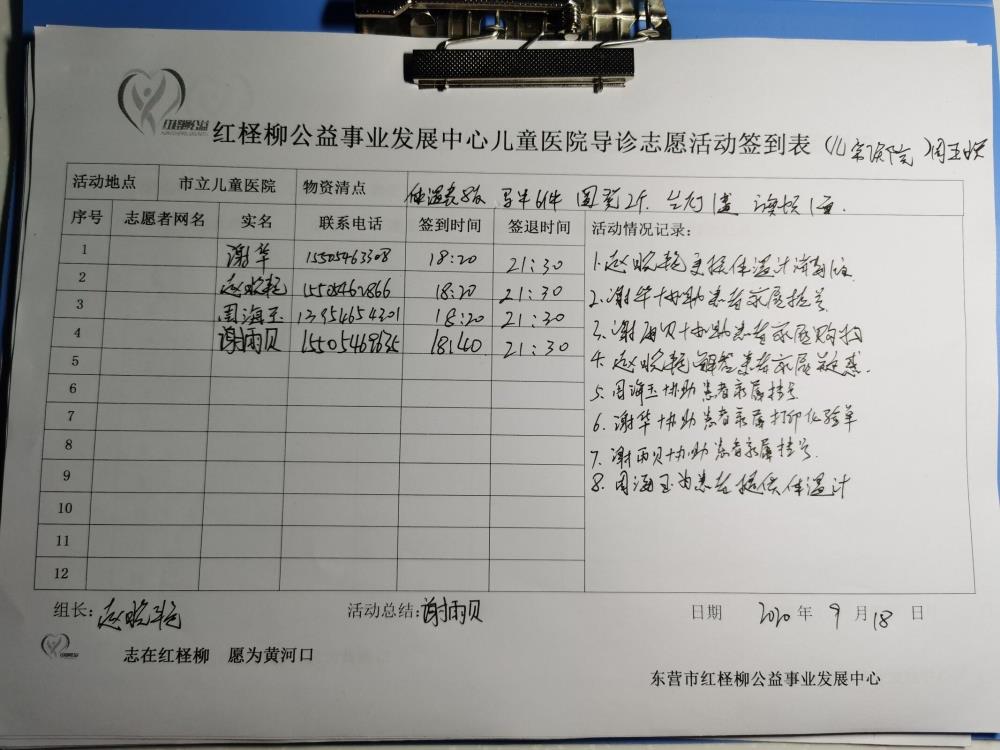 红柽柳公益
红柽柳公益事业发展中心儿童医院导诊志愿活动签到表（儿童医院）周玉洪
活动地点 市立儿童医院 物资清点 体温表8板 马甲6件 围裙2个 1盒 1面
序号 志愿者网名 实名 联系电话 签到时间 签退时间 活动情况记录：
1 谢华 15505463308 18:20 21:30 1.赵晓乾更换体温计
2 赵晓乾 15505462866 18:20 21:30 2.谢华协助患者家属挂号
3 周海玉 13954654301 18:20 21:30 3.谢雨贝协助患者家属购物
4 谢雨贝 15505469635 18:40 21:30 4.赵晓乾解答患者家属疑惑.
5 5.周海玉协助患者家属挂号
6 6.谢华协助患者家属打印化验单
7 7.谢雨贝协助患者家属挂号.
8 8.周海玉为患者提供体温计
9
10
11
12
组长：赵晓乾 活动总结：谢雨贝 日期 2020年9月18日
志在红柽柳 愿为黄河口
东营市红柽柳公益事业发展中心